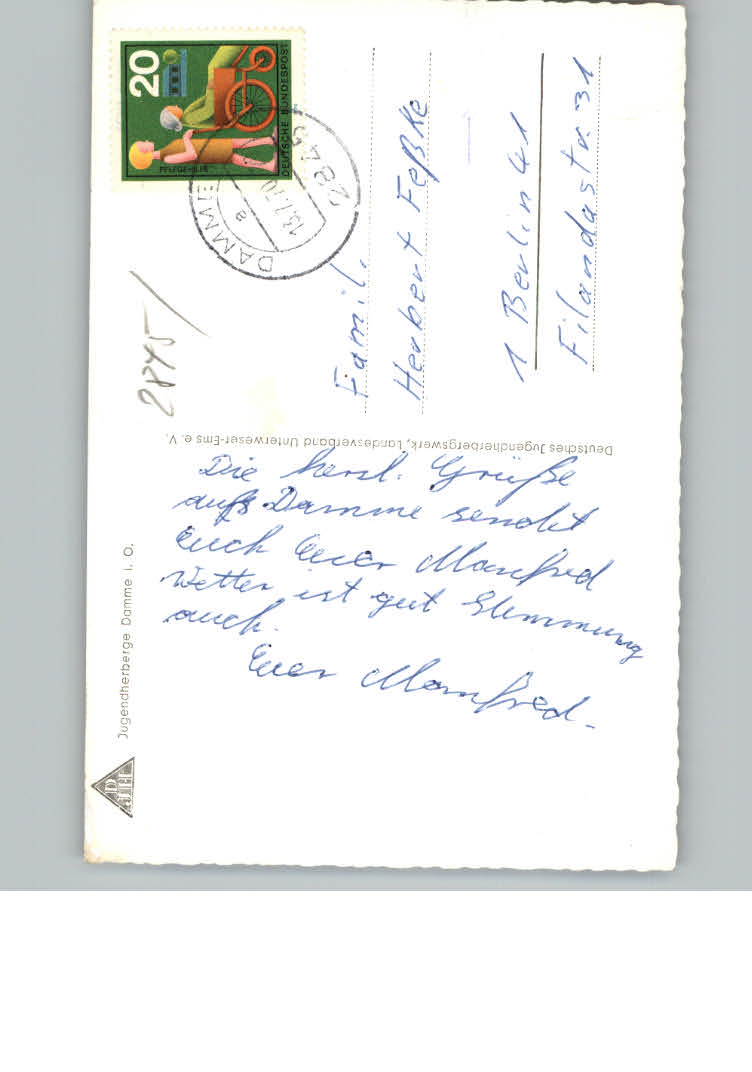 20
DEUTSCHE BUNDESPOST
PFLEGE-HILFE
2845
DAMME
a
13.7.70
2845
Famil.
Herbert Feßke
1 Berlin 41
Filandastr. 31
Deutsches Jugendherbergswerk, Landesverband Unterweser-Ems e. V.
Die herzl. Grüße
aus Damme sendet
Euch Euer Manfred
Wetter ist gut Stimmung
auch.
Euer Manfred.
Jugendherberge Damme i. O.
DJH